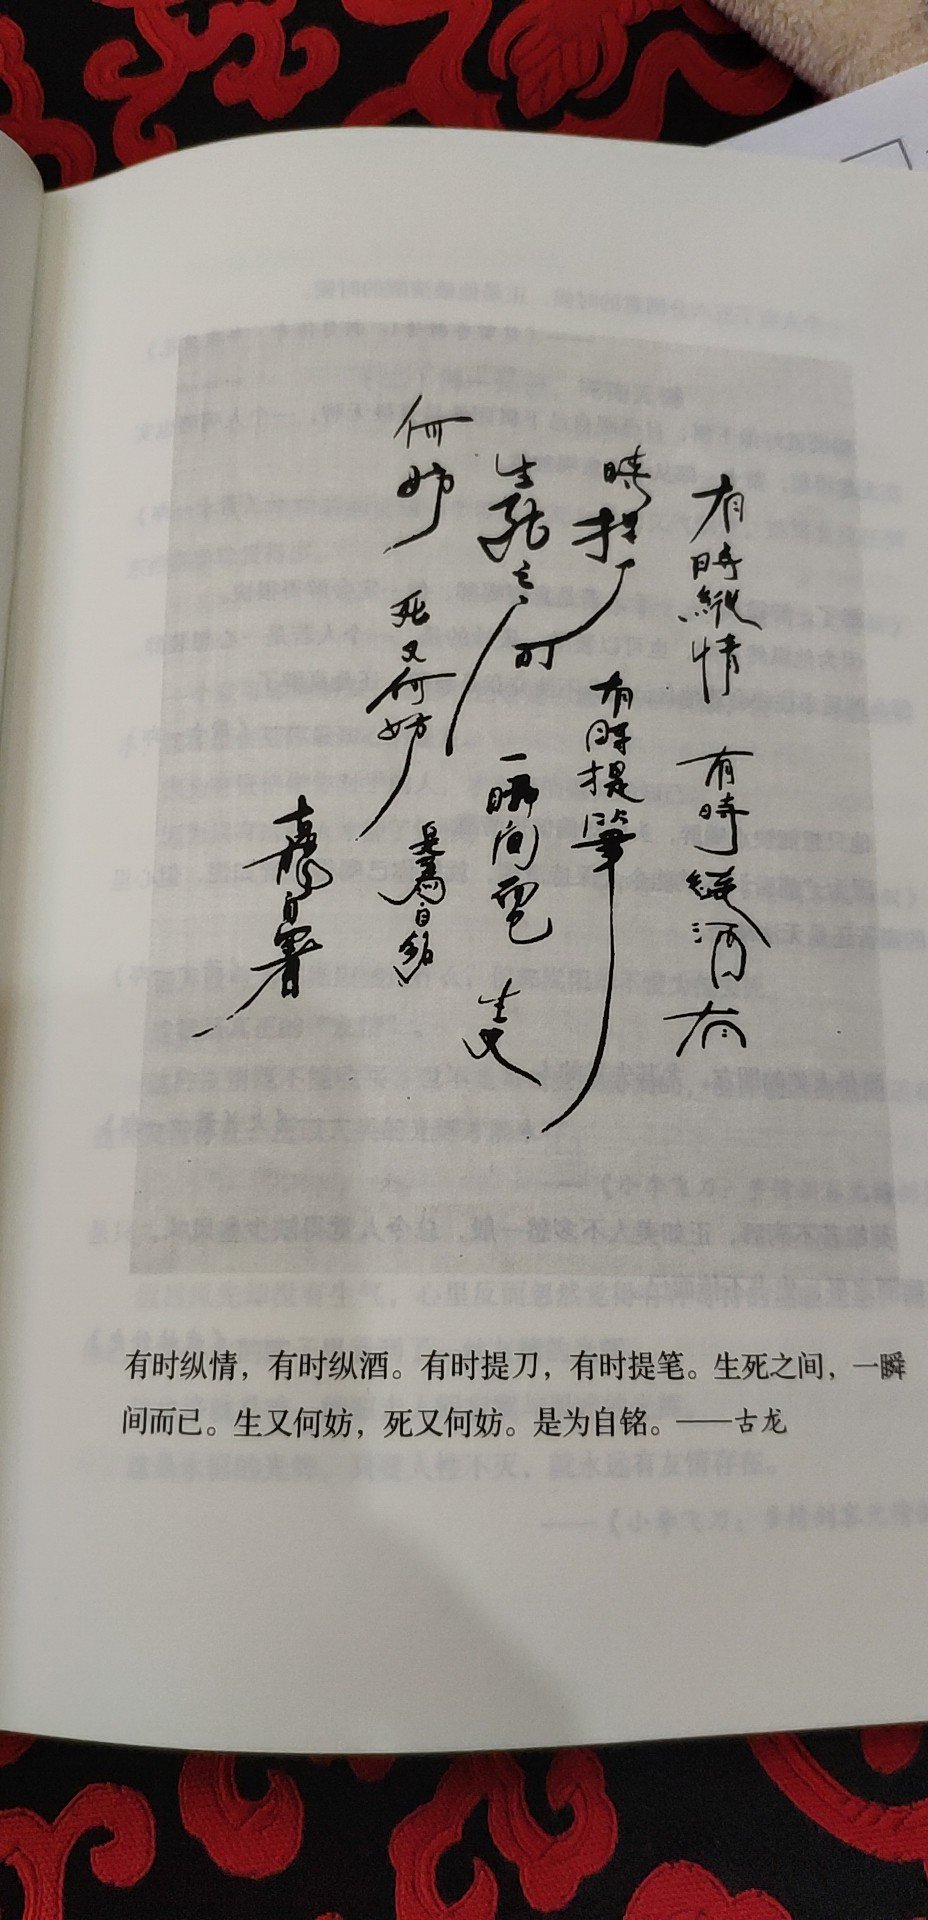 有時縱情 有時縱酒 有
時提刀 有時提筆
生死之间 一瞬间而已 生又
何妨 死又何妨 是為自銘
古龍自署
有时纵情，有时纵酒。有时提刀，有时提笔。生死之间，一瞬
间而已。生又何妨，死又何妨。是为自铭。——古龙